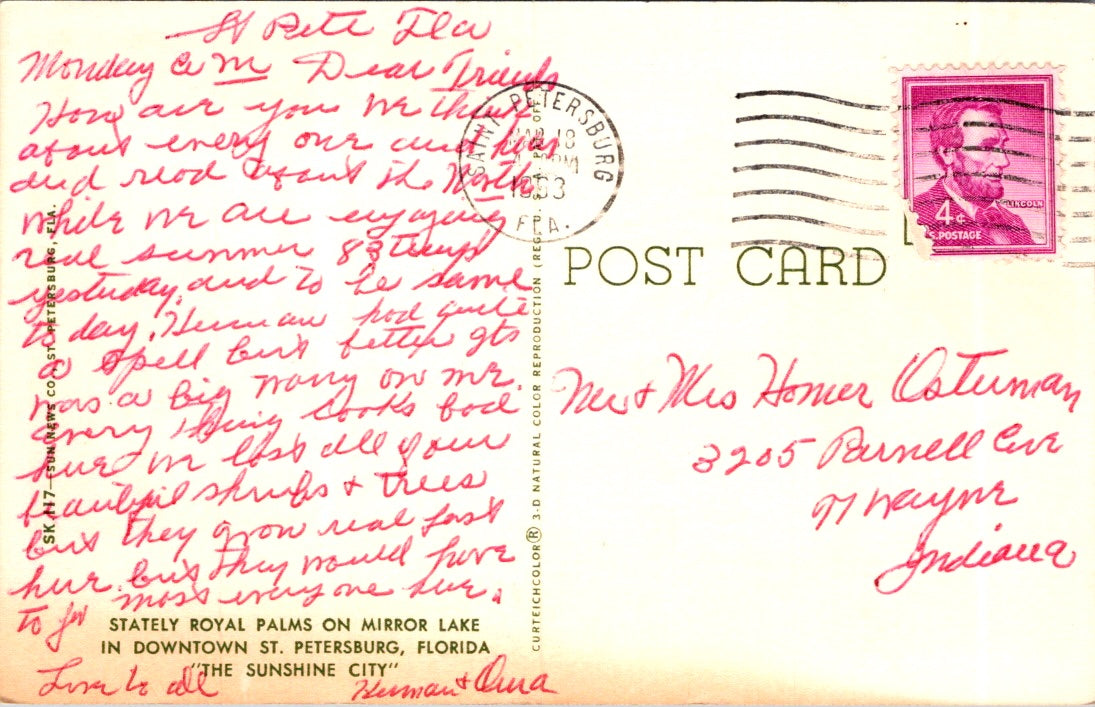 St Pete Fla
Monday a m Dear Friends
How are you We think
about every one and hear
and read about the North
while we are enjoying
real summer 83 temp
yesterday, and to be same
to day. Herman had quite
a spell but better gts
was a big worry on me.
every thing looks bad
here we lost all of our
beautiful shrubs & trees
but they grow real fast
here. but they would have
to for most everyone here.
Love to all Herman & Oma
STATELY ROYAL PALMS ON MIRROR LAKE
IN DOWNTOWN ST. PETERSBURG, FLORIDA
"THE SUNSHINE CITY"
SK 117—SUN NEWS CO., ST. PETERSBURG, FLA.
CURTEICHCOLOR® 3-D NATURAL COLOR REPRODUCTION (REG. U.S. OF
SAINT PETERSBURG
18
PM
1963
FLA.
POST CARD
LINCOLN
4¢
U.S. POSTAGE
Mr & Mrs Homer Osterman
3205 Burnell Ave
Ft Wayne
Indiana